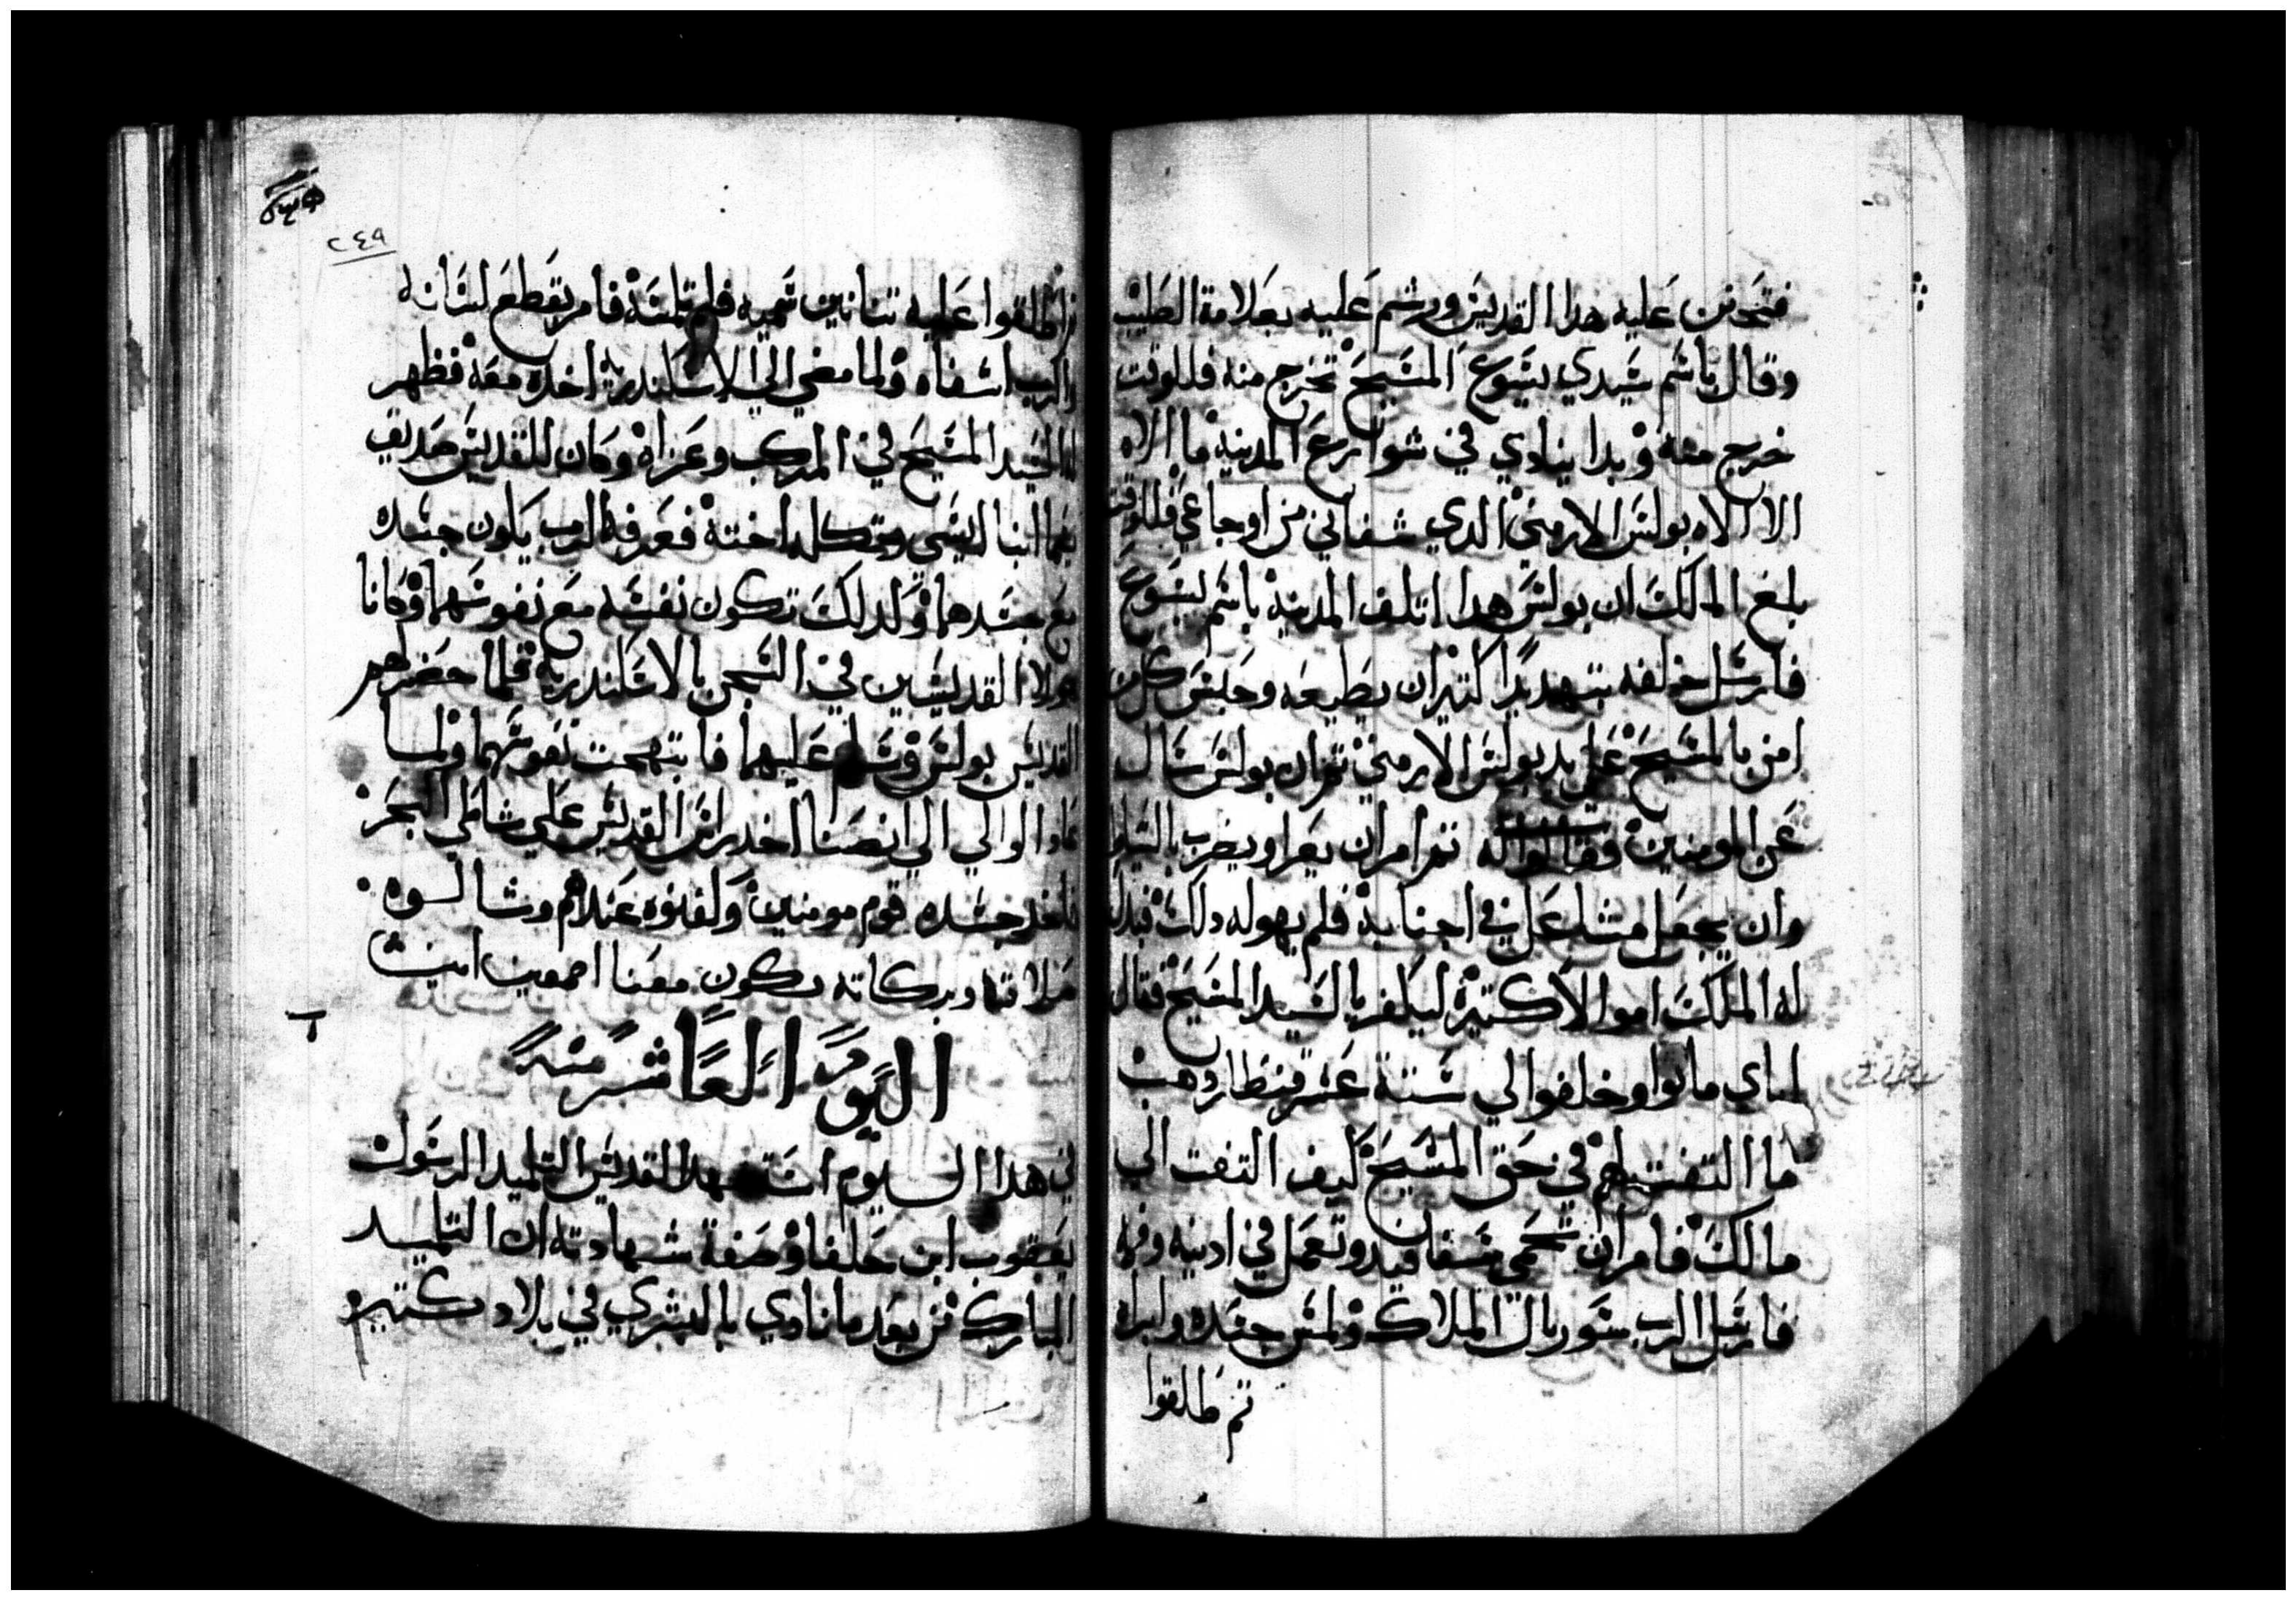 فتحنن عليه هدا القديس ورشم عليه بعلامة الصليب
وقال باسم سيدي يسوع المسيح تخرج منه فللوقت
خرج منه وبدا ينادي في شوارع المدينه ما الاه
الا الاه بولس الارمني الدي شفاني من اوجاعي فللوقت
بلغ الملك ان بولس هدا اتلف المدينه باسم يسوع
فارسل خلفه بتهديدا كتير ان يطيعه وحبس كل من
امن بالمسيح علي يد بولس الارمني تم ان بولس سال
عن المومنين وقالوا له تم امر ان يعرا ويضرب بالسياط
وان يجعل مشاعل في اجنابه فلم يهوله دلك فبدل
له الملك اموالا كتيره ليكفر بالسيد المسيح فقال
ابهاي ماتوا وخلفوا لي ستة عشر قنطار دهب
ما التفت لهم في حق المسيح كيف التفت الي
مالك فامر ان تحمي سفافيد وتعمل في ادنيه وفمه
فارسل الرب سوريال الملاك ولمس جسده وابراه
تم طلقوا
تم اطلقوا عليه تنانين سميه فلم تلمسه فامر بقطع لسانه
والرب اشفاه ولما مضي الي الاسكندريه اخده معه فظهر
له السيد المسيح في المركب وعزاه وكان للقديس صديق
بيما انبا ايسي وتكله اخته فعرفه الرب يكون جسده
مع جسدهما ولدلك تكون نفسه مع نفوسهما وكانا
هولا القديسين في السجن بالاسكندريه فلما حضر لهم
القديس بولس وسلم عليهما فابتهجت نفوسهما ولما
عاد الوالي الي انصنا اخد راس القديس علي شاطي البحر
فاخد جسده قوم مومنين وكفنوه عندهم وشالوه
صلاتة وبركاته تكون معنا اجمعين امين
اليوم العاشر منه
في هدا اليوم استشهد القديس التلميد الرسول
يعقوب ابن حلفا وصفة شهادته ان التلميد
المبارك من بعد ما نادي بالبشري في بلاد كتيره
٢٤٩